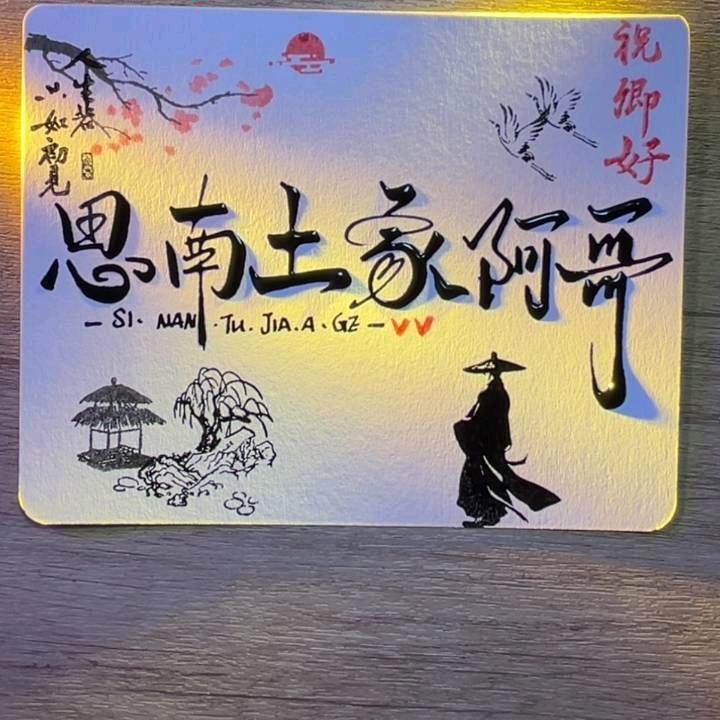 人生若
只如初見
祝卿好
思南土家阿哥
- SI. NAN. TU. JIA. A. GE -